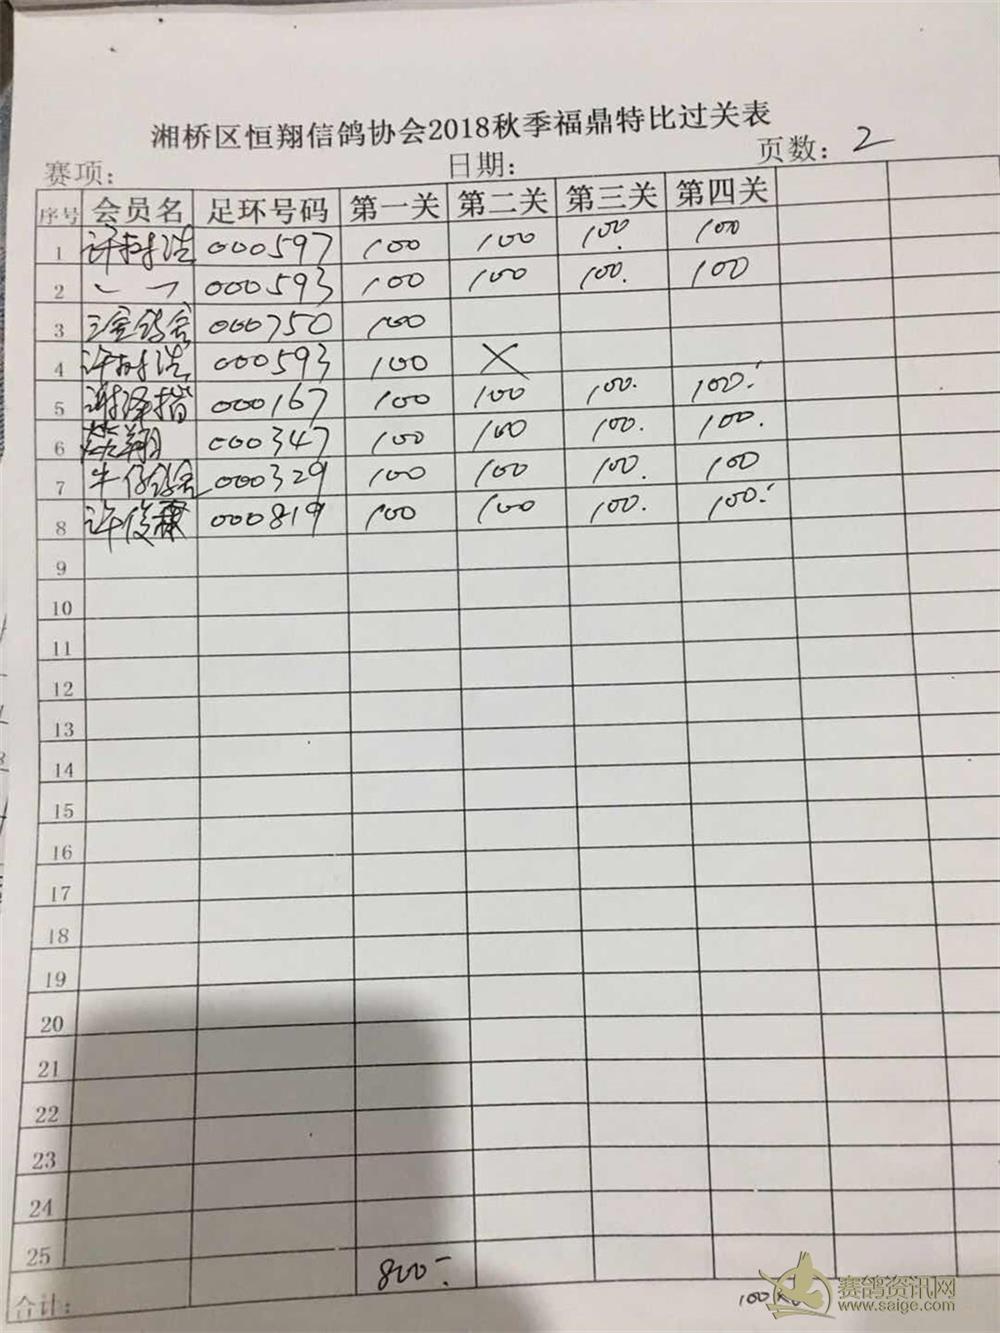 湘桥区恒翔信鸽协会2018秋季福鼎特比过关表
赛项: 日期: 页数: 2
序号 会员名 足环号码 第一关 第二关 第三关 第四关
1 许树浩 000597 100 100 100. 100
2 000593 100 100 100. 100
3 000750 100
4 许树浩 000593 100 X
5 谢泽楷 000167 100 100 100. 100.
6 翔 000347 100 100 100. 100.
7 牛仔鸽舍 000329 100 100 100. 100
8 许俊 000819 100 100 100. 100.
9
10
11
12
13
14
15
16
17
18
19
20
21
22
23
24
25
合计: 800
100
赛鸽资讯网
www.saige.com